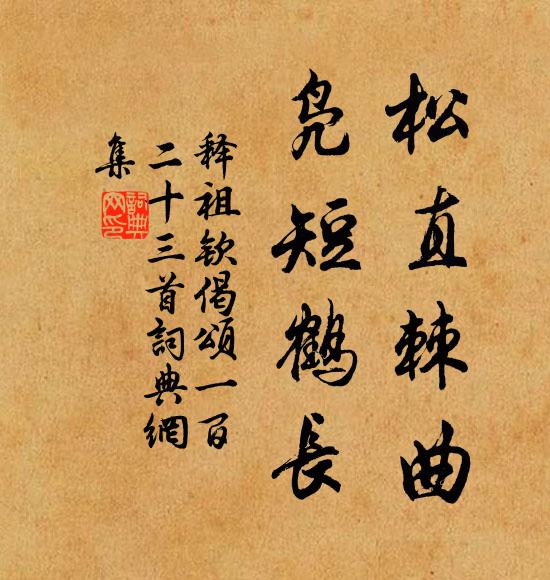 松直棘曲
凫短鶴長
释祖钦偈頌一百
二十三首詞典網
集
詞典网印